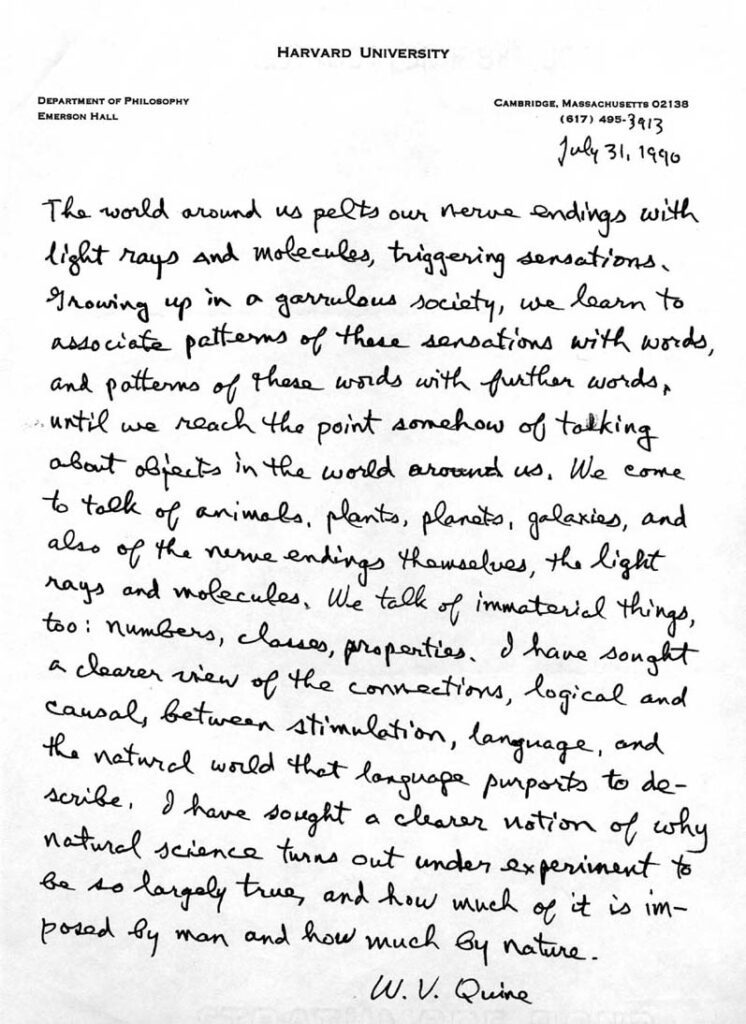 HARVARD UNIVERSITY
DEPARTMENT OF PHILOSOPHY
EMERSON HALL
CAMBRIDGE, MASSACHUSETTS 02138
(617) 495-3913
July 31, 1990
The world around us pelts our nerve endings with
light rays and molecules, triggering sensations.
Growing up in a garrulous society, we learn to
associate patterns of these sensations with words,
and patterns of these words with further words,
until we reach the point somehow of talking
about objects in the world around us. We come
to talk of animals, plants, planets, galaxies, and
also of the nerve endings themselves, the light
rays and molecules. We talk of immaterial things,
too: numbers, classes, properties. I have sought
a clearer view of the connections, logical and
causal, between stimulation, language, and
the natural world that language purports to de-
scribe. I have sought a clearer notion of why
natural science turns out under experiment to
be so largely true, and how much of it is im-
posed by man and how much by nature.
W. V. Quine